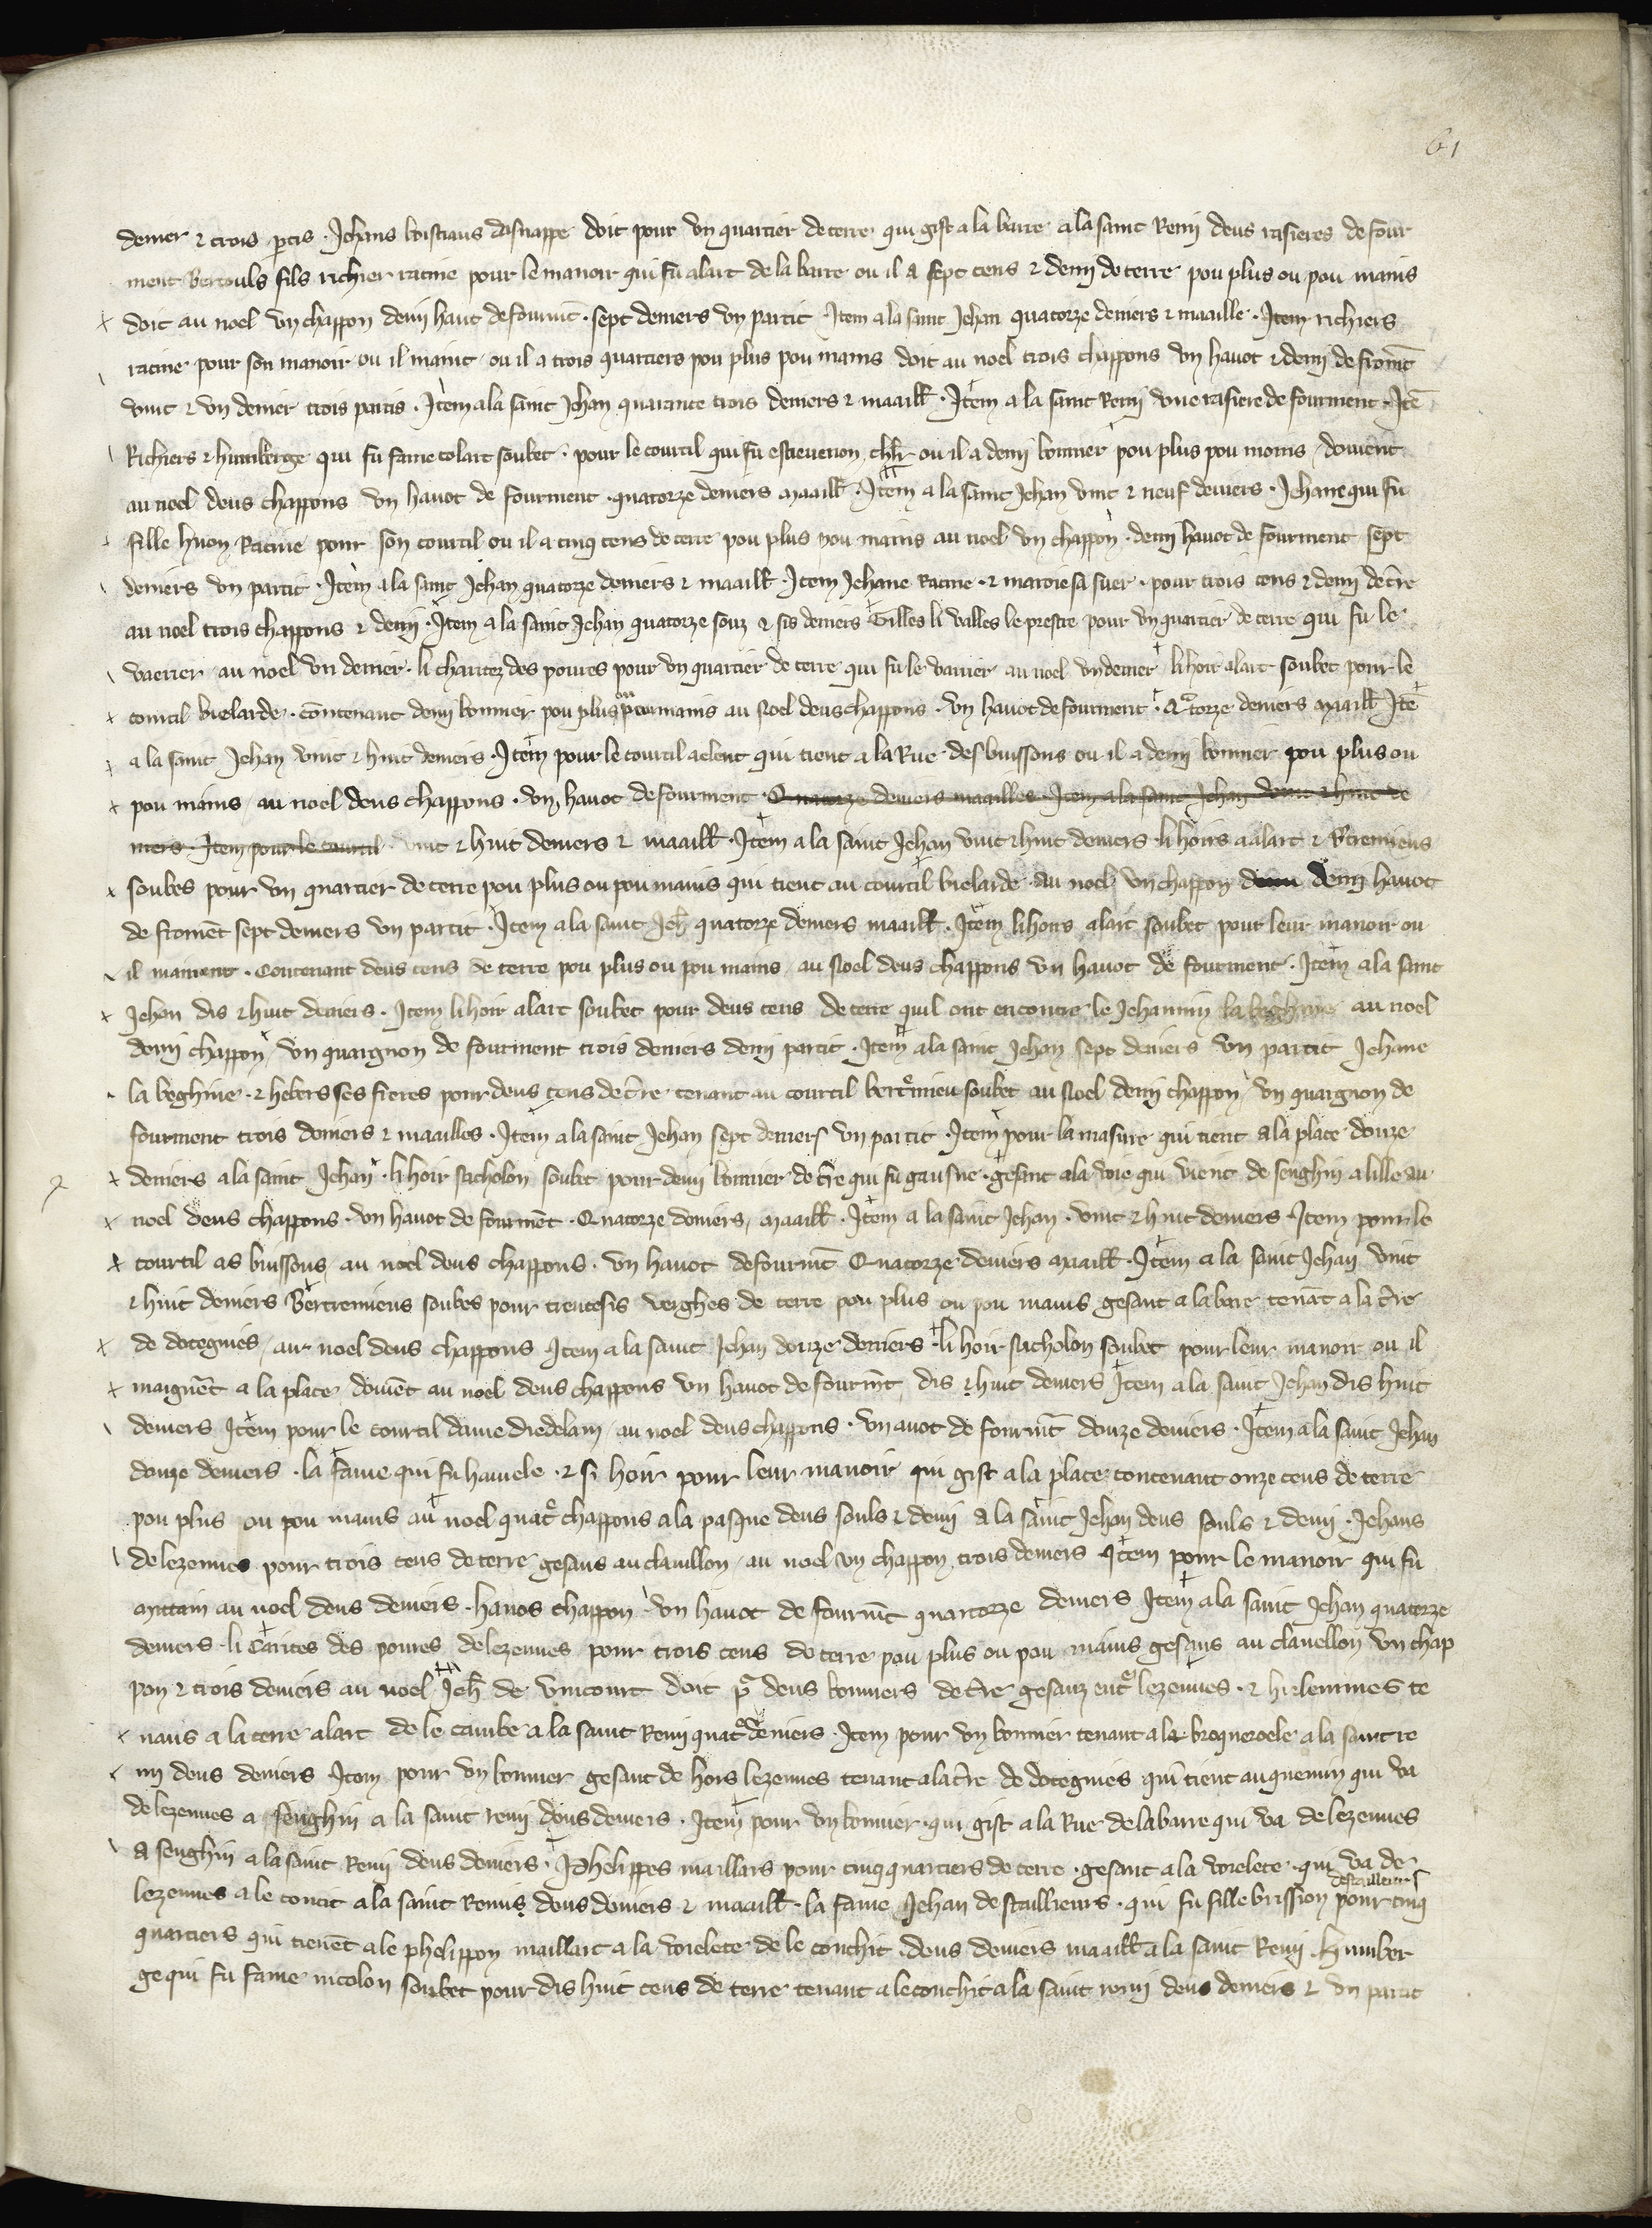 61
denier & trois p̄tis · Jehans boistiaus dasnappe doit pour vn quartier de terre qui gist a la barre a la saint Remi deus rasieres de four
ment Bertouls fils richier racine pour le manoir qui fu alart de la barre ou il a sept cens & demi de terre pou plus ou pou mains
doit au noel vn chappon demi haut de fourmt̄ · sept deniers vn partit · Item a la saint Jehan quatorze deniers & maaille · Item richiers
racine pour son manoir ou il maint ou il a trois quartiers pou plus pou mains doit au noel trois chappons vn havot & demi de fromt̄
vint & vn denier trois partis · Item a la saint Jehan quarante trois deniers & maaill · Item a la saint Remi vne rasiere de fourment · Itē
Richiers & humberge qui fu fame colart soubet · pour le courtil qui fu estievenon ou il a demi bonnier pou plus pou moins doiuent
au noel deus chappons vn havot de fourment · quatorze deniers maaill · Item a la saint Jehan vint & neuf deniers · Jehane qui fu
fille huon Racine pour son courtil ou il a cinq cens de terre pou plus pou mains au noel vn chappon · demi havot de fourment sept
deniers vn partit · Item a la saint Jehan quatorze deniers & maaill · Item Jehane Racine · & maroie sa suer · pour trois cens & demi de tr̄e
au noel trois chappons & demi · Item a la saint Jehan quatorze souz & sis deniers Gilles li valles le prestre pour vn quartier de terre qui fu le
vaerier au noel vn denier · li charitez des poures pour vn quartier de terre qui fu le varier au noel vn denier li hoir alart soubet pour le
courtil bielarde · cōtenant demi bonnier pou plus ou pou mains au noel deus chappons · vn havot de fourment · Qtorze deniers maaill Itē
a la saint Jehan vint & huit deniers · Item pour le courtil aelent qui tient a la Rue des buissons ou il a demi bonnier pou plus ou
pou mains au noel deus chappons · vn havot de fourment · Quatorze deniers maailles Item a la saint Jehan vint & huit de
niers · Item pour le courtil vint & huit deniers & maaill · Item a la saint Jehan vint & huit deniers · li hoirs aalart & Bertremieus
soubes pour vn quartier de terre pou plus ou pou mains qui tient au courtil bielarde au noel vn chappon demi havot
de fromēt sept deniers vn partit · Item a la saint Jeh̄ quatorze deniers maaill · Item li hoirs alart soubet pour leur manoir ou
il mainent · Contenant deus cens de terre pou plus ou pou mains au noel deus chappons vn havot de fourment · Item a la saint
Jehan dis & huit deniers · Item li hoir alart soubet pour deus cens de terre quil ont encontre le Jehannin la beghine au noel
demi chappon vn quaregnon de fourment trois deniers demi partit · Item a la saint Jehan sept deniers vn partit Jehane
la beghine · & hebers ses freres pour deus cens de tr̄e tenant au courtil bertmieu soubet au noel demi chappon vn quaregnon de
fourment trois deniers & maailles · Item a la saint Jehan sept deniers vn partit · Item pour la masure qui tient a la place douze
deniers a la saint Jehan · li hoir nicholon soubet pour demi bonnier de tr̄e qui fu gausne · gesant a la voie qui vient de senghin a lille au
noel deus chappons · vn havot de fourmēt · Quatorze deniers maaill · Item a la saint Jehan · vint & huit deniers · Item pour le
courtil as buissons au noel deus chappons · vn havot de fourmt̄ Quatorze deniers maaill · Item a la saint Jehan vint
& huit deniers Bertremieus soubes pour trentesis verghes de terre pou plus ou pou mains gesant a la bare tenāt a la tr̄e
de dotegnies au noel deus chappons Item a la saint Jehan douze deniers · li hoir nicholon soubet pour leur manoir ou il
maignēt a la place doiuēt au noel deus chappons vn havot de fourmt̄ dis & huit deniers Item a la saint Jehan dis huit
deniers Item pour le courtil dame diedelain au noel deus chappons · vn avot de fourmt̄ douze deniers · Item a la saint Jehan
douze deniers · la fame qui fu hamele · & si hoir pour leur manoir qui gist a la place contenant onze cens de terre
pou plus ou pou mains au noel quat chappons a la pasque deus souls & demi a la saint Jehan deus souls & demi · Jehans
de lezennes pour trois cens de terre gesans au clauillon au noel vn chappon trois deniers Item pour le manoir qui fu
au noel deus deniers · chappon · vn havot de fourmt̄ quatorze deniers Item a la saint Jehan quatorze
deniers · li carites des poures de lezennes pour trois cens de terre pou plus ou pou mains gesans au clauellon vn chap
pon & trois deniers au noel Jeh̄ de vincourt doit deus bonniers de tr̄e gesanz ent lezennes · & hielemmes te
nans a la terre alart de le cambe a la saint Remi quat deniers · Item pour vn bonnier tenant a le broqueroele a la saint re
mi deus deniers Item pour vn bonnier gesant de hors lezennes tenant a la tr̄e de dotegnies qui tient au quemin qui va
de lezennes a senghin a la saint remi deus deniers · Item pour vn bonnier qui gist a la Rue de la barre qui va de lezennes
a senghin a la saint Remi deus deniers · Phelippes maillars pour cinq quartiers de terre · gesant a la voielete · qui va de
lezennes a le concit a la saint Remis deus deniers & maaill · la fame Jehan destaillieurs · qui fu fille brission destailleurs pour cinq
quartiers qui tienēt a le phelippon maillart a la voielete de le conchit deus deniers maaill a la saint Remi · Humber
ge qui fu fame nicolon soubet pour dis huit cens de terre tenant a le conchit a la saint remi deus deniers & vn partit